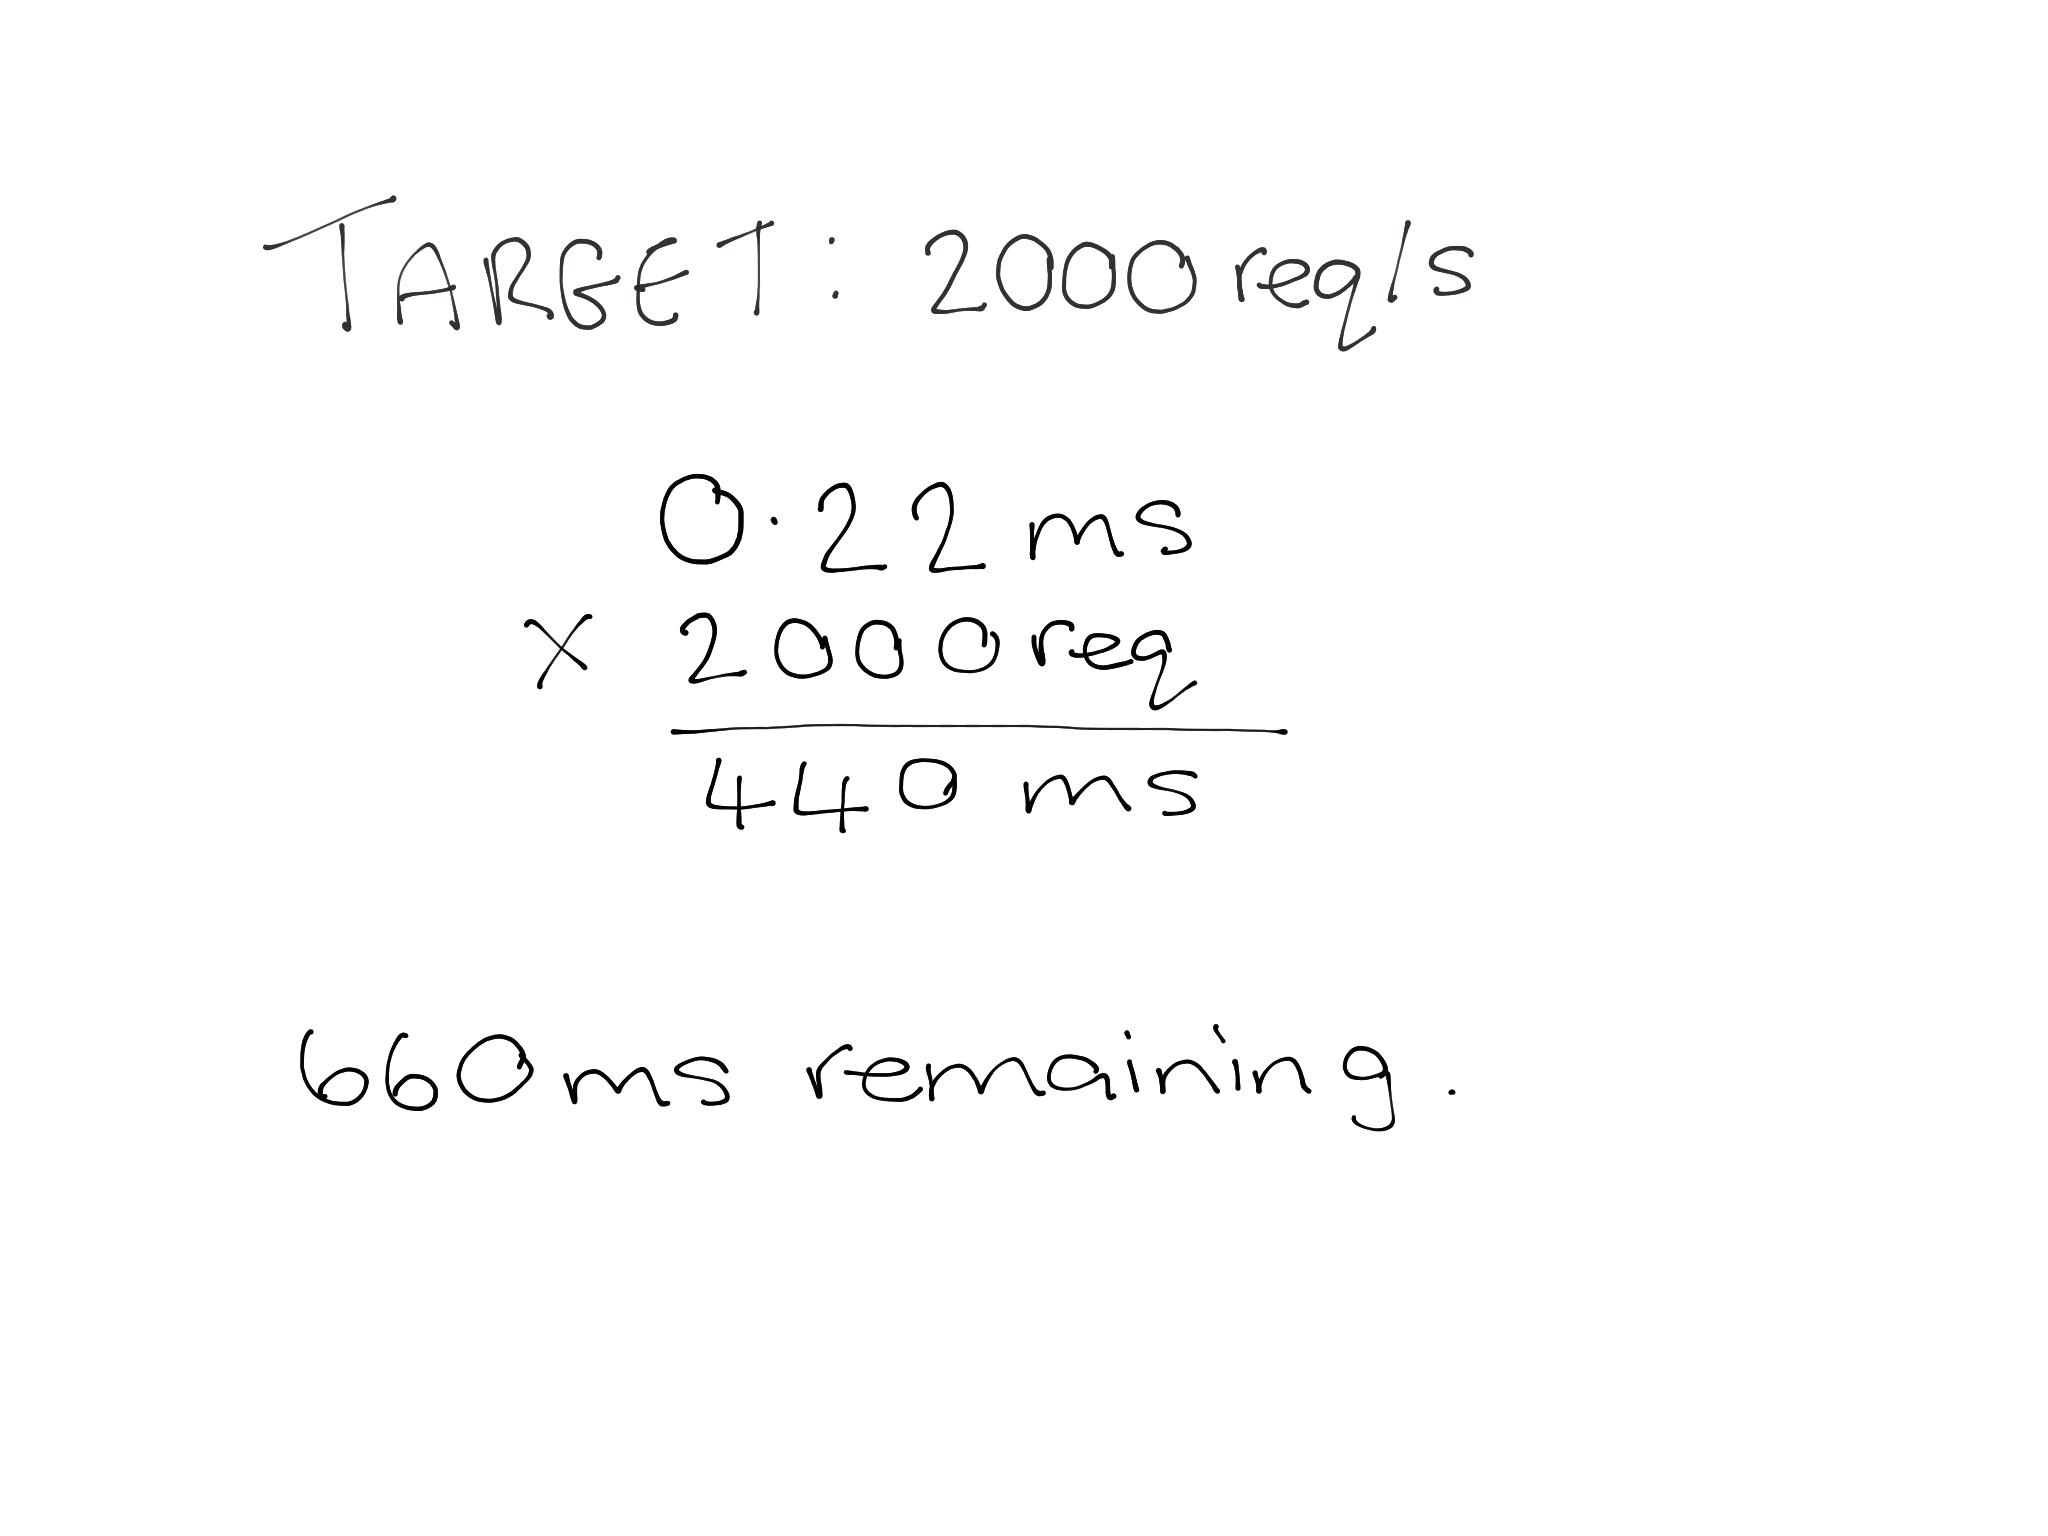 TARGET: 2000req/s
0.22ms
x 2000req
440 ms
660ms remaining.